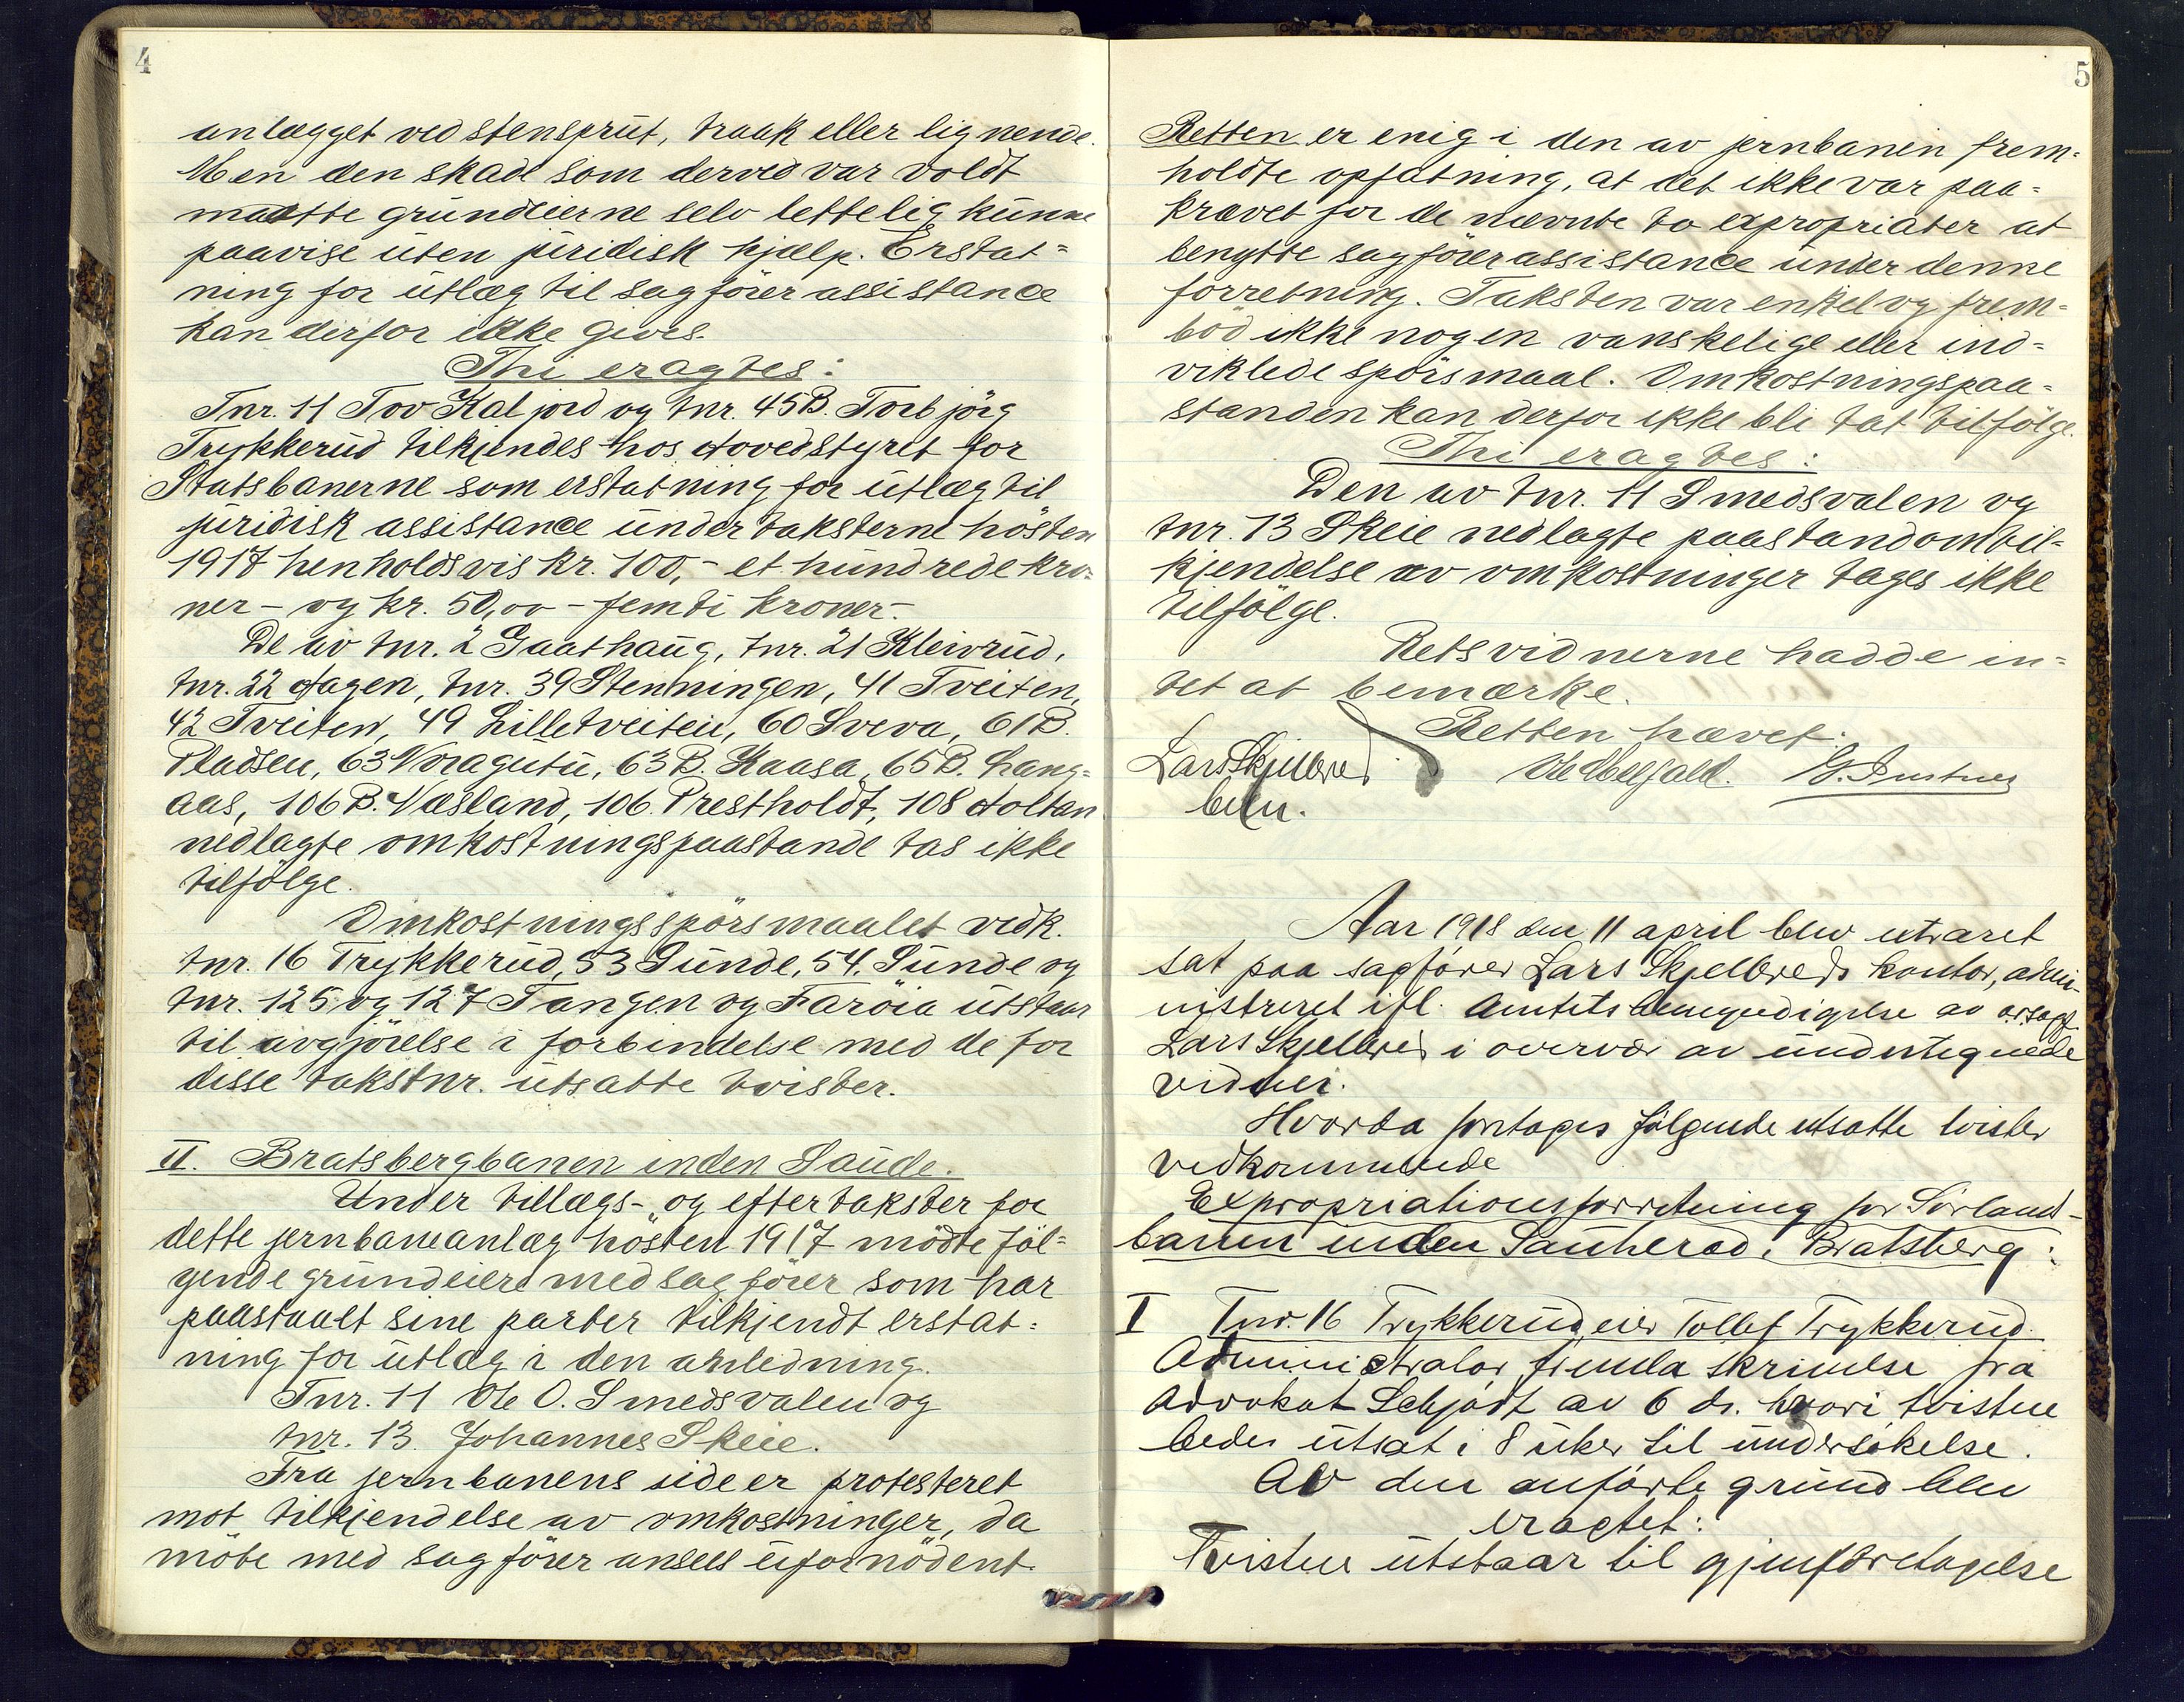 4
anlægget ved stensprut, traak eller lignende.
Men den skade som derved var voldt
maatte grundeierne selv lettelig kunne
paavise uten juridisk hjælp. Erstat=
ning for utlæg til sagförerassistance
kan derfor ikke gives.
Thi eragtes:
Tnr. 11 Tov Kaljord og tnr. 45B. Torbjörg
Trykkerud tilkjendes hos Hovedstyret for
Statsbanerne som erstatning for utlæg til
juridisk assistance under taksterne hösten
1917 henholdsvis kr. 100,- et hundrede kro=
ner - og kr. 50,00 - femti kroner -
De av tnr. 2 Gaathaug, tnr. 21 Kleivrud,
tnr. 22 Hagen, tnr. 39 Stenningen, 41 Tveiten,
42 Tveiten, 49 Lilletveiten, 60 Sveva, 61B.
Pladsen, 63 Noragutu, 63B. Kaasa, 65B. Lang=
aas, 106B. Næsland, 106. Prestholdt, 108 Holtan
nedlagte omkostningspaastande tas ikke
tilfölge.
Omkostningsspörsmaalet vedk.
tnr. 16 Trykkerud, 53 Sunde, 54. Sunde og
tnr. 125 og 127 Tangen og Faröia utstaar
til avgjörelse i forbindelse med de for
disse takstnr. utsatte tvister.
II. Bratsbergbanen inden Saude.
Under tillægs- og eftertakster for
dette jernbaneanlæg hösten 1917 mödte föl=
gende grundeiere med sagförer som har
paastaalt sine parter tilkjendt erstat=
ning for utlæg i den anledning.
Tnr. 11 Ole O. Smedsvalen og
tnr. 13. Johannes Skeie.
Fra jernbanens side er protesteret
mot tilkjendelse av omkostninger, da
möte med sagförer ansees ufornödent.
5
Retten er enig i den av jernbanen frem=
holdte opfatning, at det ikke var paa=
krævet for de nævnte to expropriater at
benytte sagförerassistance under denne
forretning. Taksten var enkel og frem=
böd ikke nogen vanskelige eller ind=
viklede spörsmaal. Omkostningspaa=
standen kan derfor ikke bli tat tilfölge.
Thi eragtes:
Den av tnr. 11 Smedsvalen og
tnr. 13 Skeie nedlagte paastand om til=
kjendelse av omkostninger tages ikke
tilfölge.
Retsvidnerne hadde in=
tet at bemærke.
Retten hævet.
Lars Skjelbred
Aar 1918 den 11 april blev extraret
sat paa sagförer Lars Skjelbreds kontor, admi-
nistreret ifl. Amtets bemyndigelse av orsagf.
Lars Skjelbred i overvær av undertegnede
vidner.
Hvorda foretages fölgende utsatte tvister
vedkommende
Expropriationsforretning for Sörlands-
banen inden Sauherad i Bratsberg:
I Tnr. 16 Trykkerud, eier Tollef Trykkerud.
Administrator fremla skrivelse fra
advokat Schjödt av 6 ds. hvori tvisten
bedes utsat i 8 uker til undersökelse.
Av den anförte grund blev
eragtet:
Tvisten utstaar til gjenforetagelse